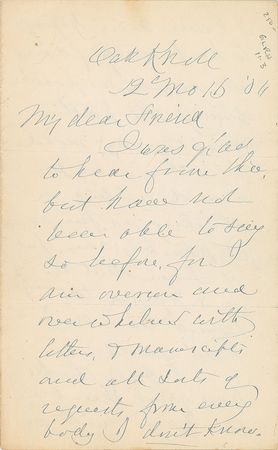 Oak Knoll
12 Mo 16 '84
My dear Friend
I was glad
to hear from thee,
but have not
been able to say
so before, for I
am overrun and
overwhelmed with
letters, & manuscripts
and all sorts of
requests from every
body I don't know.